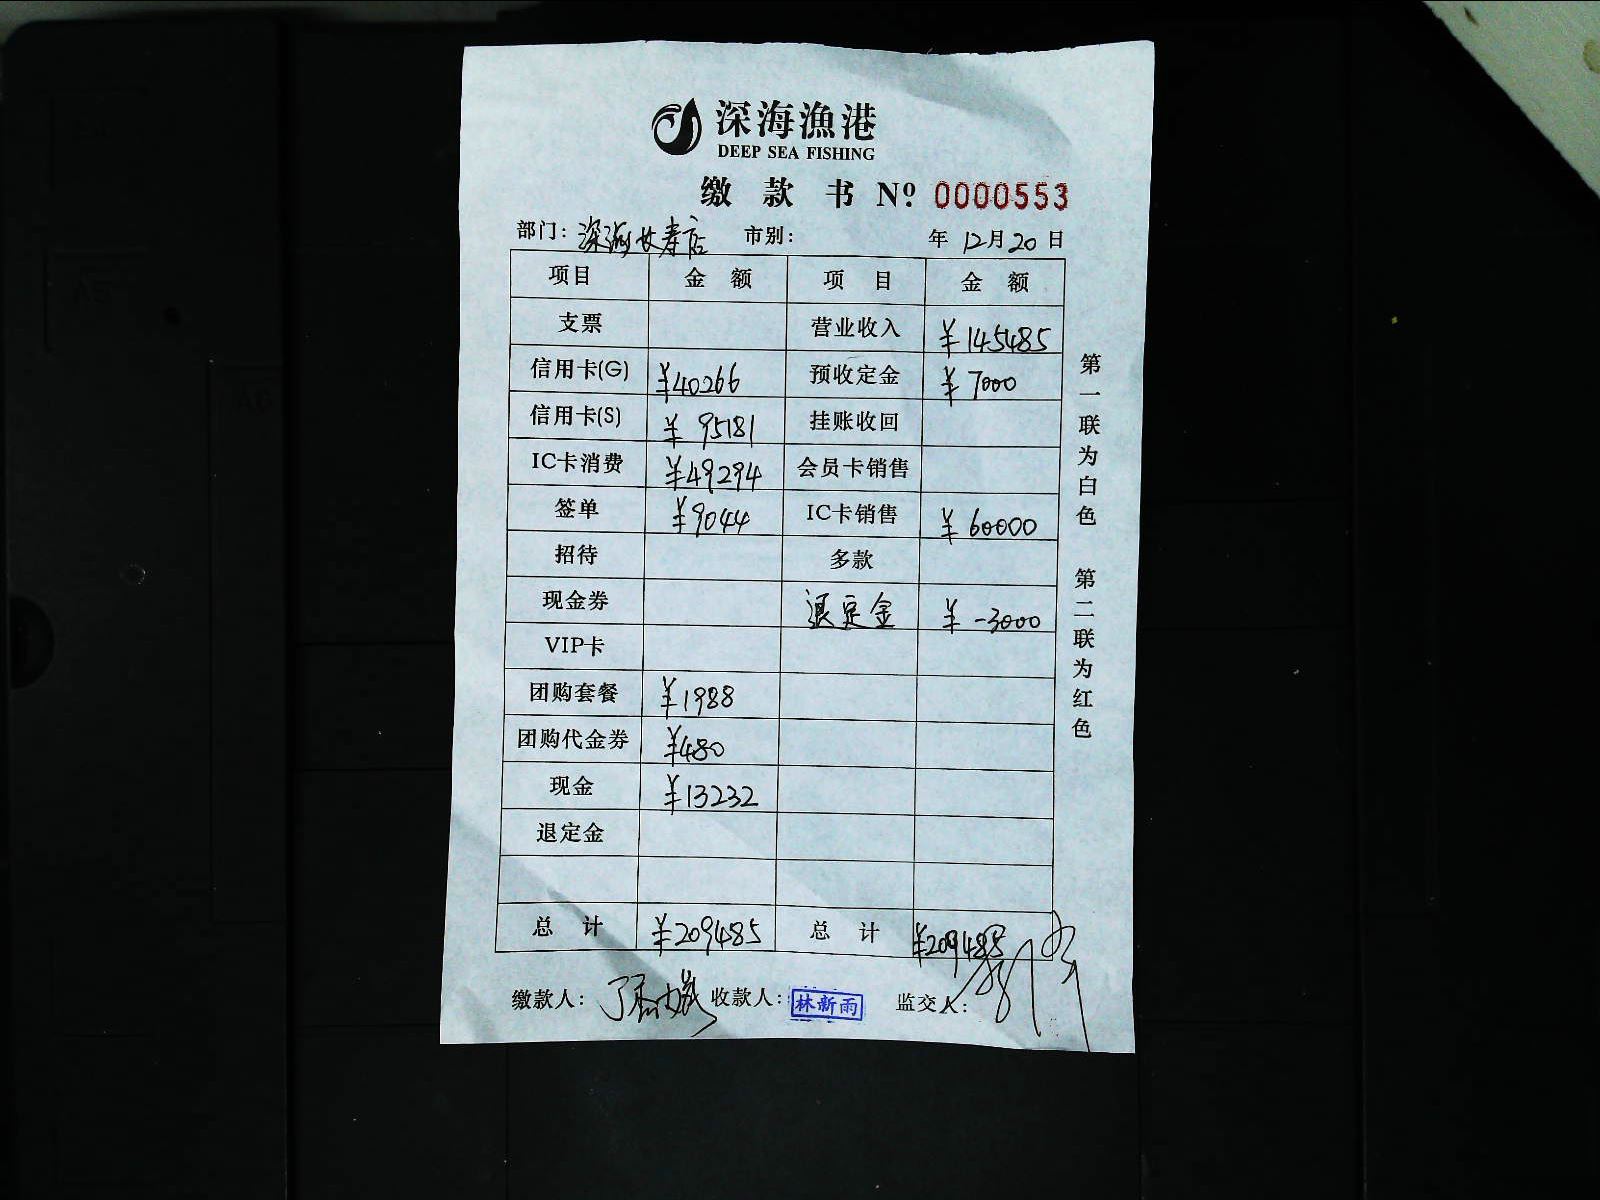 深海渔港
DEEP SEA FISHING
缴款书 Nº 0000553
部门：深海长寿店 市别： 年 12月20日
项目 金额 项目 金额
支票 营业收入 ¥145485
信用卡(G) ¥40266 预收定金 ¥7000
信用卡(S) ¥95181 挂账收回
IC卡消费 ¥49294 会员卡销售
签单 ¥9044 IC卡销售 ¥60000
招待 多款
现金券 退定金 ¥-3000
VIP卡
团购套餐 ¥1988
团购代金券 ¥480
现金 ¥13232
退定金
总计 ¥209485 总计 ¥209485
缴款人： 收款人：林新雨 监交人：
第一联为白色 第二联为红色